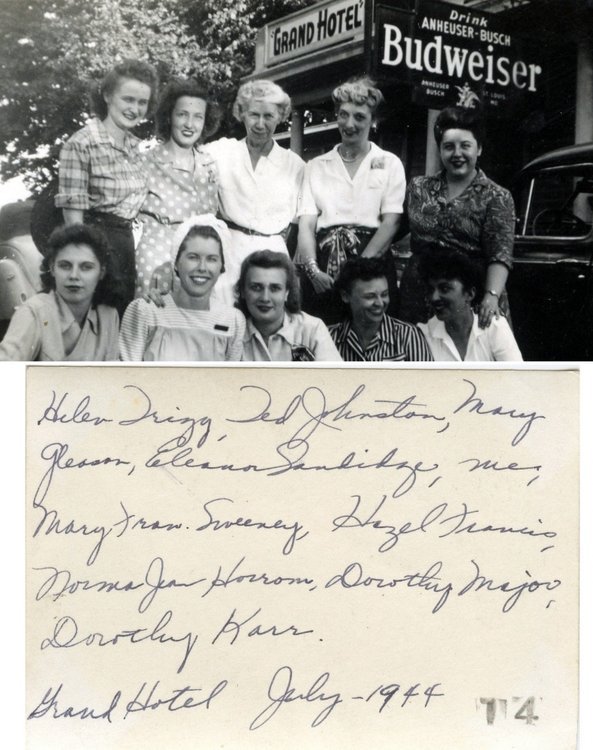 "GRAND HOTEL"
Drink
ANHEUSER-BUSCH
Budweiser
ANHEUSER BUSCH
ST. LOUIS MO
Helen Trigg, Ted Johnston, Mary
Gleason, Eleanor Sandidge, me,
Mary Fran. Sweeney, Hazel Francis,
Norma Jean Horrom, Dorothy Major,
Dorothy Karr.
Grand Hotel July-1944
T4